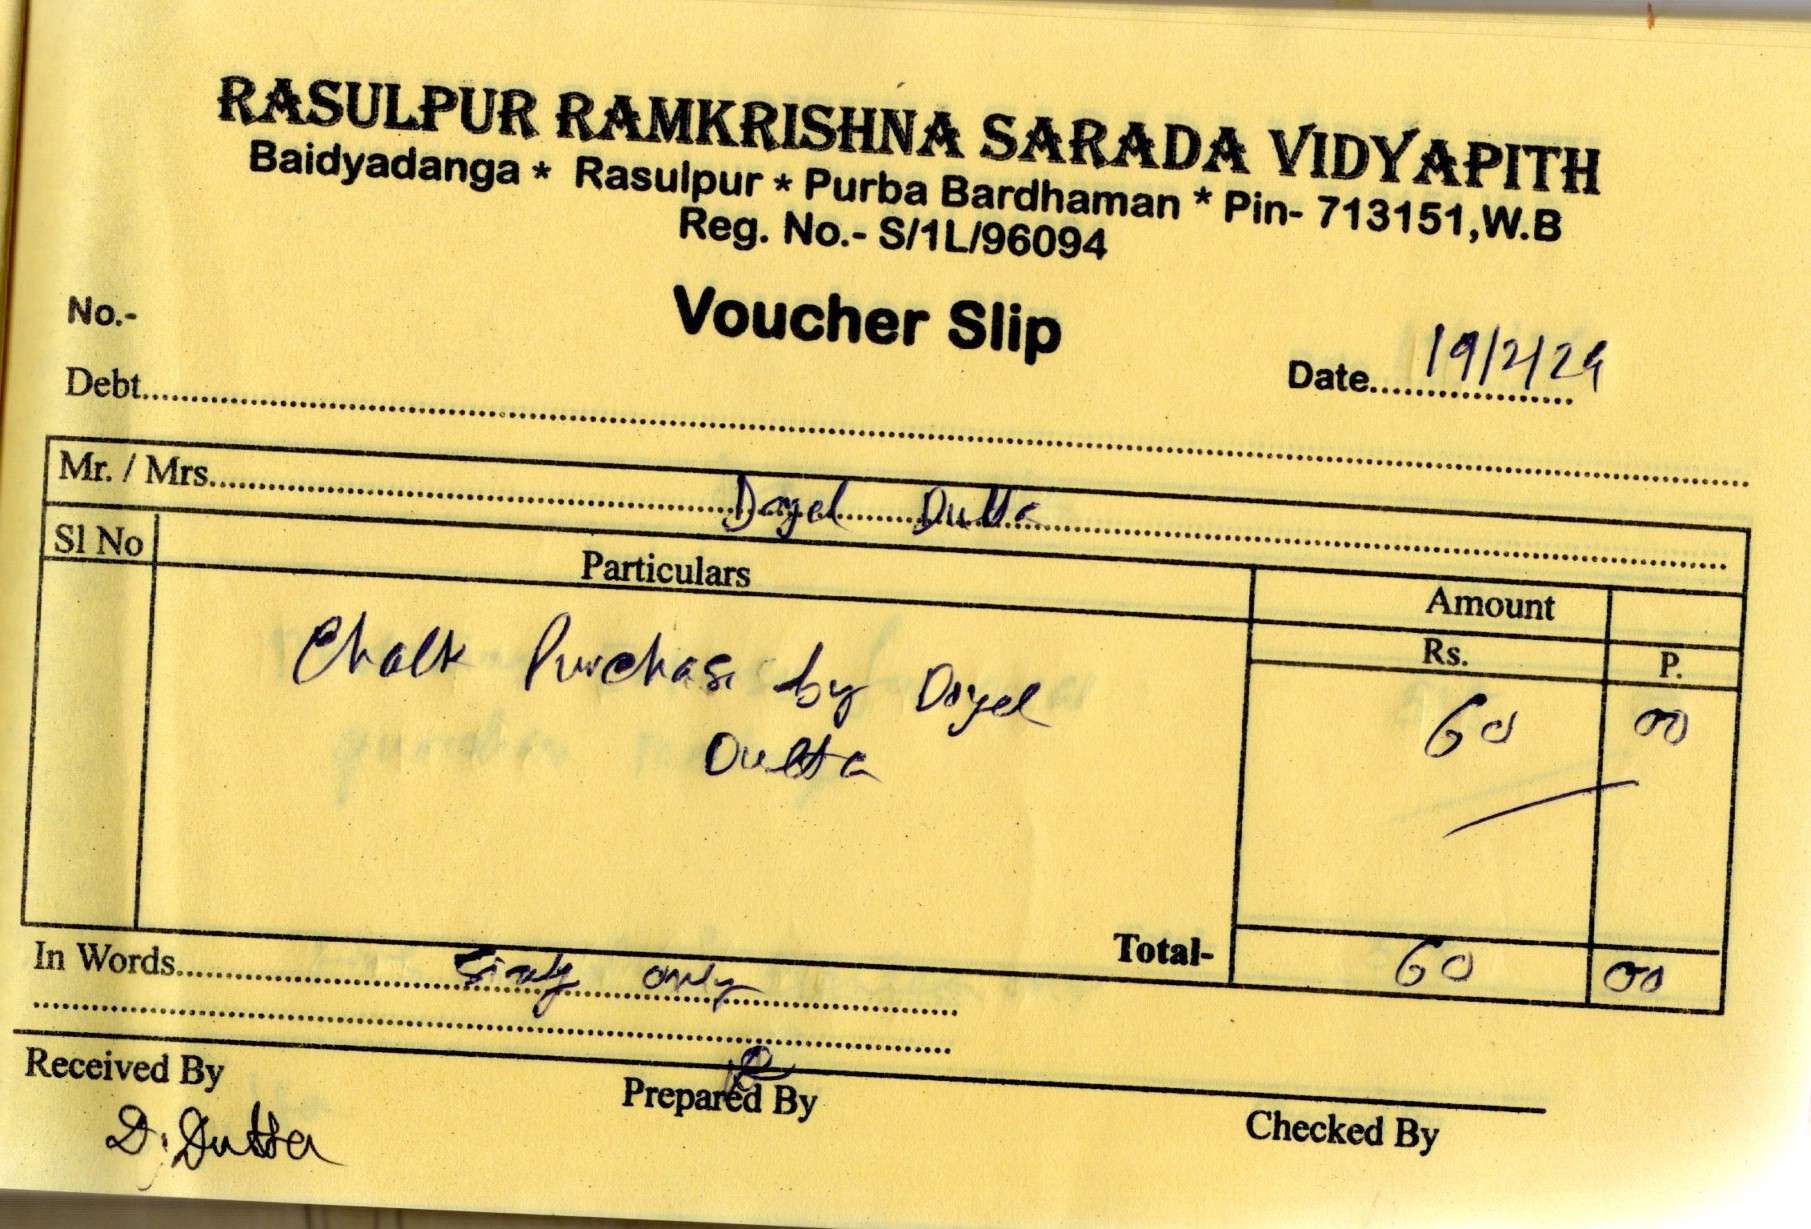 RASULPUR RAMKRISHNA SARADA VIDYAPITH
Baidyadanga * Rasulpur * Purba Bardhaman * Pin- 713151,W.B
Reg. No.- S/1L/96094
No.-
Voucher Slip
Date.................. 19/2/24
Debt
Mr. / Mrs. Doyel Dutta
Sl No Particulars Amount
Rs. P.
Chalk Purchase by Doyel 60 00
Dutta
Total- 60 00
In Words Sixty only
Received By Prepared By Checked By
D. Dutta